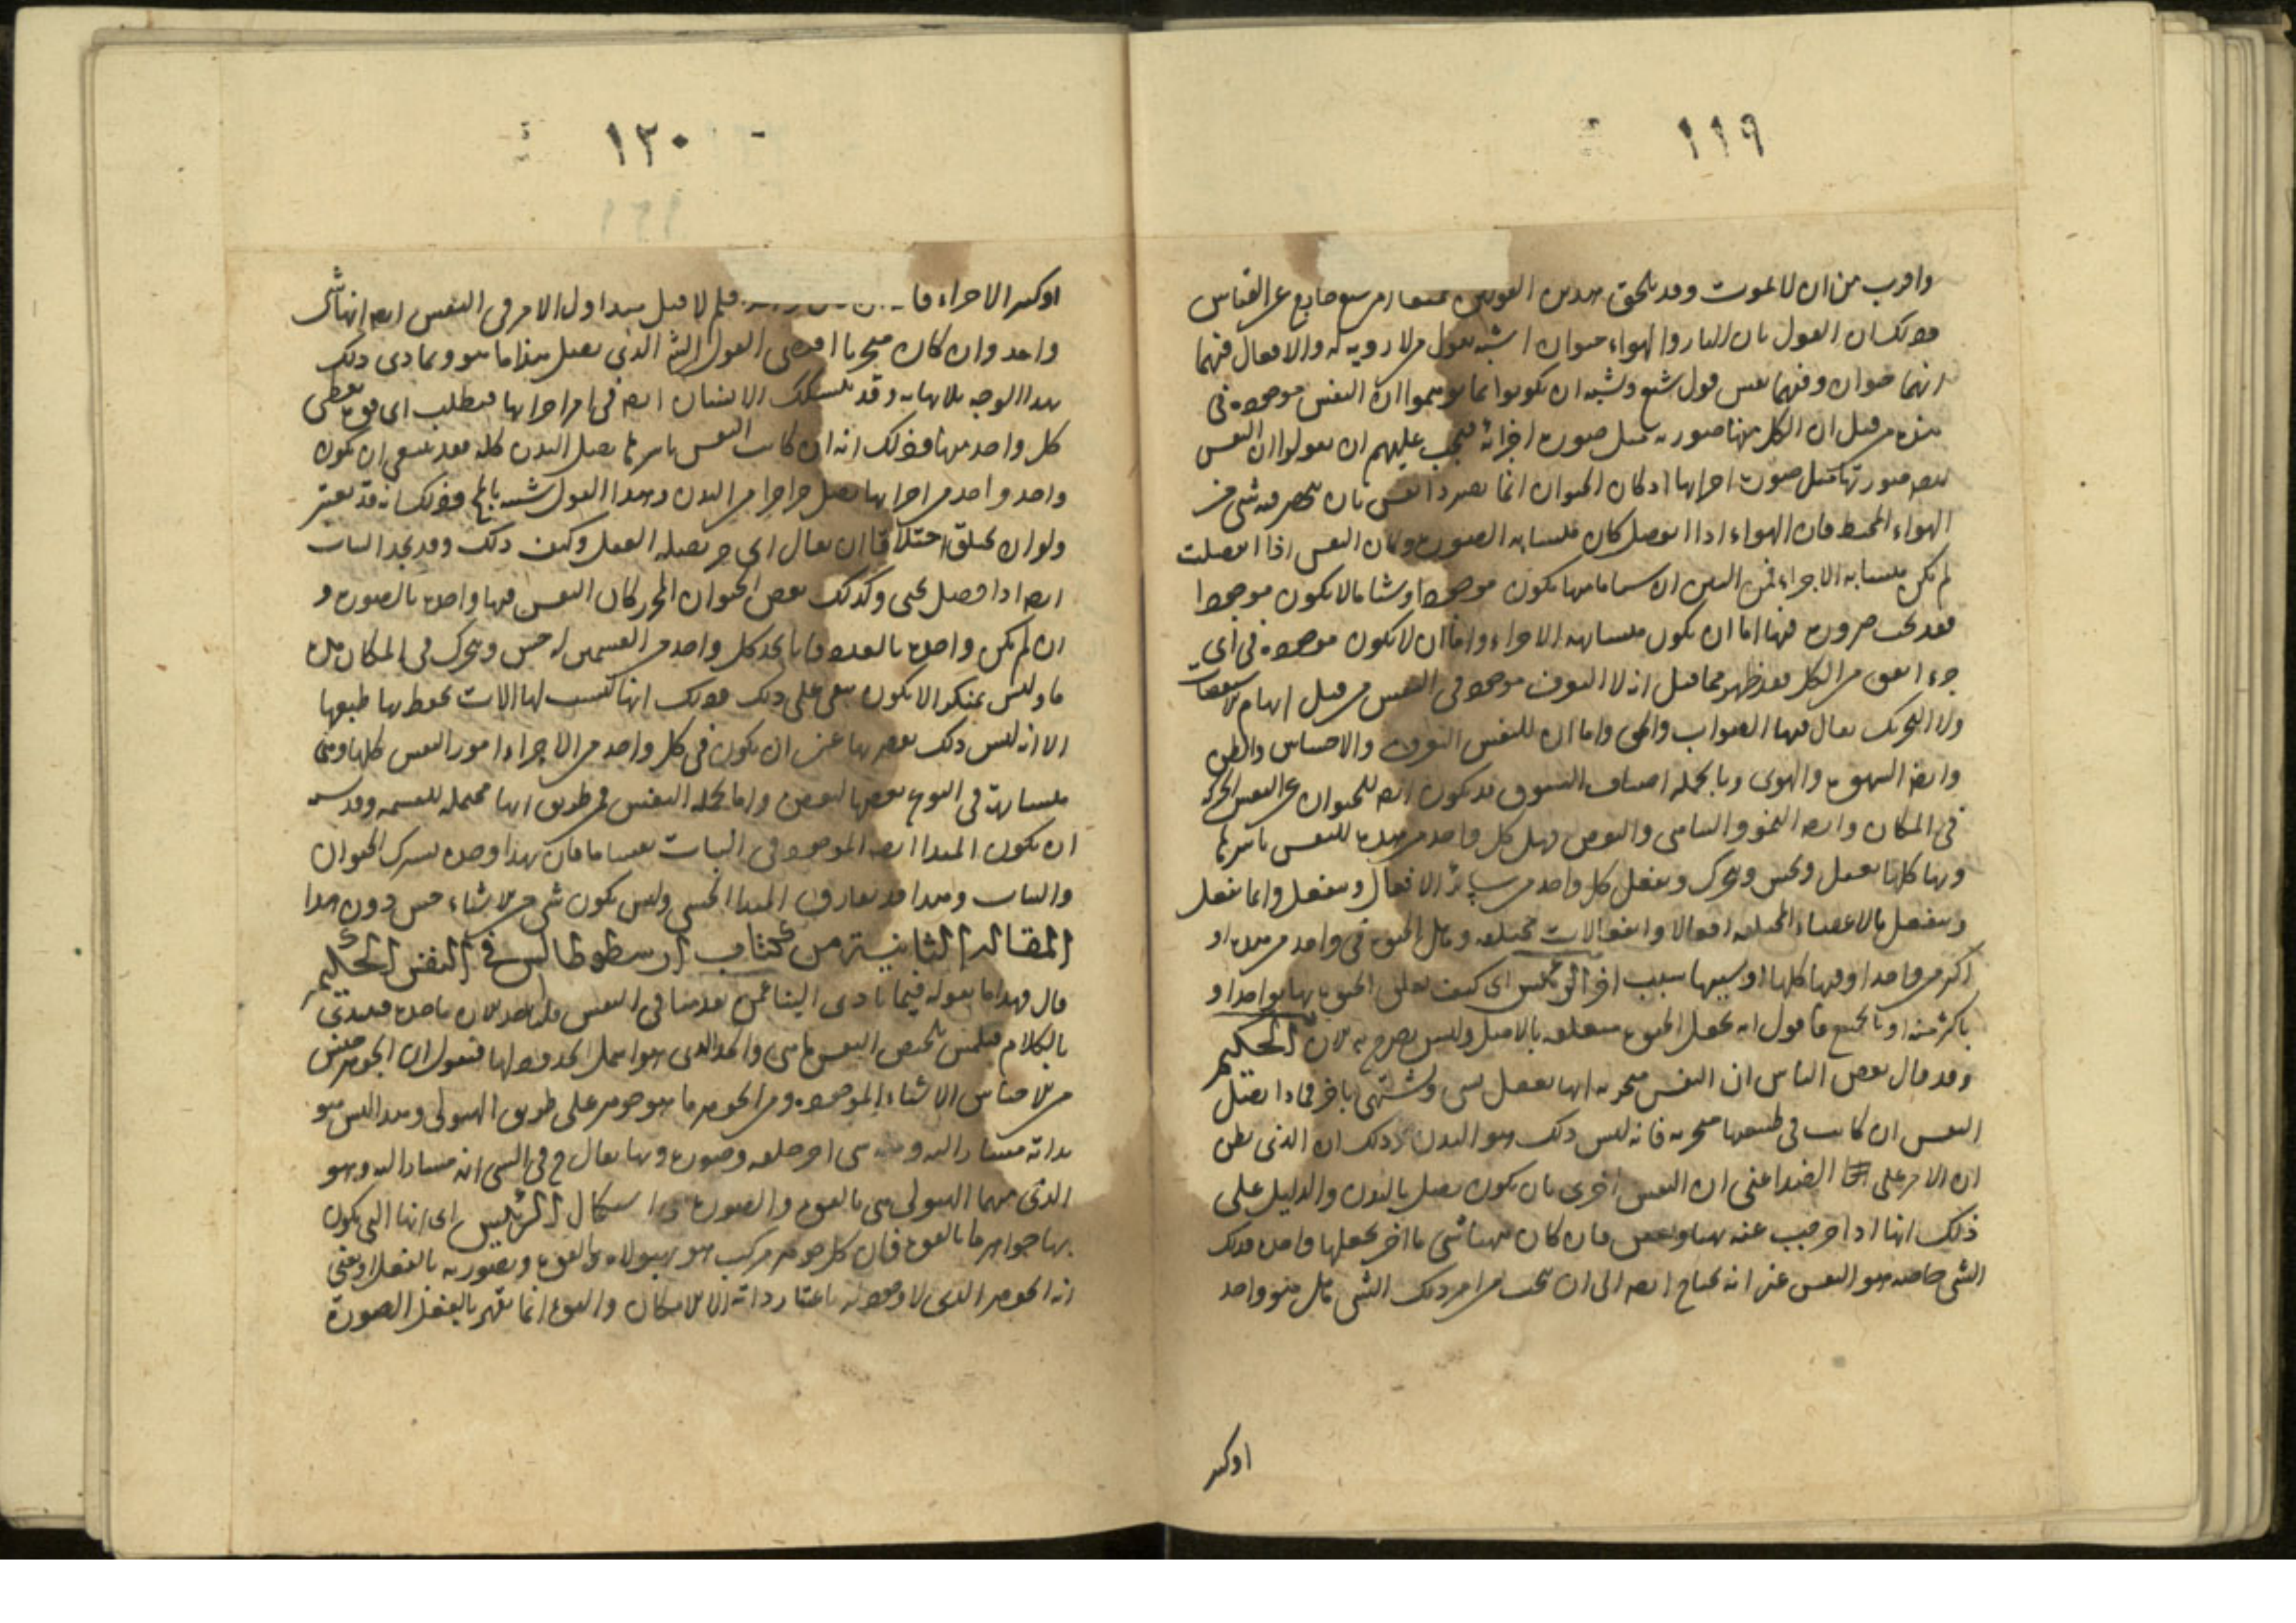 ١١٩
واقرب من ان لا يموت وقد يلحق هذين القولين جميعا امر شنع خارج عن القياس
وذلك ان القول بان النار والهواء حيوان اشبه بقول من لا روية له والافعال فيهما
انهما حيوان وفيهما نفس قول شنع ويشبه ان يكونوا انما توهموا ان النفس موجودة في
هذه من قبل ان الكل منها صورته مثل صورة اجزائه فيجب عليهم ان يقولوا ان النفس
ايضا صورتها مثل صورة اجزائها اذ كان الحيوان انما يصير ذا نفس بان ينحصر فيه شئ من
الهواء المحيط فان الهواء اذا انفصل كان متشابه الصورة وكان النفس اذا انفصلت
لم يكن متشابه الاجزاء فمن البين ان شيئا ما منها يكون موجودا وشيئا ما لا يكون موجودا
فقد يجب ضرورة فيها اما ان يكون متشابهة الاجزاء واما ان لا يكون موجودة في اى
جزء اتفق من الكل فقد ظهر مما قيل انه لا التعرف موجود في النفس من قبل انها من الاسطقسات
ولا التحريك يقال فيها الصواب والحق واما ان للنفس التعرف والاحساس والظن
وايضا الشهوة والهوى وبالجملة اصناف التشوق قد يكون ايضا للحيوان عن النفس الحركة
في المكان وايضا النمو والتنامى والنقص فهل كل واحد من هذه للنفس باسرها
وبها كلها نعقل ونحس ونتحرك ونفعل كل واحد من سائر الافعال وننفعل وانما نفعل
وننفعل بالاعضاء المختلفة افعالا وانفعالات مختلفة وهل الحيوة في واحد من هذه او
اكثر من واحد او فيها كلها او سببها سبب اخر الرئيس اى كيف تعلق الحيوة بها بواحد او
باكثر منه او بالجميع فاقول انه يجعل الحيوة متعلقة بالاصل وليس يصرح به الان الحكيم
وقد قال بعض الناس ان النفس متجزية انها تعقل بشئ وتشتهى باخر فماذا يصل
النفس ان كانت في طبعها متجزية فانه ليس ذلك هو البدن وذلك ان الذى يظن
ان الامر على الضد اعنى ان النفس احرى بان يكون يصل بالبدن والدليل على
ذلك انها اذا خرجت عنه تهبأ وتعفن فان كان ههنا شئ ما اخر يجعلها واحدة فذلك
الشئ خاصة هو النفس غير انه يحتاج ايضا الى ان يبحث من امر ذلك الشئ هل هو واحد
اوكثير
١٢٠
اوكثير الاجزاء فان فلم لا قيل مبدا اول الامر في النفس ايضا انها شئ
واحد وان كان متجزيا اقتضى القول ايضا الذى يصل هذا ما هو وتمادى ذلك
بهذا الوجه بلا نهاية وقد يتشكك الانسان ايضا في امر اجزائها فيطلب اى قوة يعطى
كل واحد منها وذلك انه ان كانت النفس باسرها يصل البدن كله فقد ينبغى ان يكون
واحد واحد من اجزائها يصل جزءا جزءا من البدن وهذا القول شبيه بالمحال وذلك انه قد يعسر
ولو ان يختلق اختلاقا ان يقال اى جزء يصله العقل وكيف ذلك وقد نجد النبات
ايضا اذا فصل يحيى وكذلك بعض الحيوان المحزز كان النفس فيها واحدة بالصورة و
ان لم يكن واحدة بالعدد فانا نجد كل واحد من القسمين له حس ويتحرك في المكان مدة
ما وليس بمنكر الا يكون يبقى على ذلك وذلك انها ليست لها الات يحفظ بها طبعها
الا انه ليس ذلك بضد بها عن ان يكون في كل واحد من الاجزاء امور النفس كلها وهى
متشابهة في النوع بعضها لبعض واما بجملة النفس فعن طريق انها محتملة للقسمة وقد يشبه
ان يكون المبدا ايضا الموجود في النبات نفسا ما فان بهذا وحده يشترك الحيوان
والنبات وهذا قد يفارق المبدا الحسى وليس يكون شئ من الاشياء حس دون هذا
المقالة الثانية من كتاب ارسطوطاليس في النفس الحكيم
قال فهذا ما نقوله فيما تادى الينا عمن تقدمنا في النفس فلنأخذ الان باخذ مبتدئ
بالكلام فيلتمس تلخيص النفس ما هى والحد الذى هو اشمل الحدود لها فنقول ان الجوهر جنس
من اجناس الاشياء الموجودة ومن الجوهر ما هو جوهر على طريق الهيولى وهذا ليس هو
بذاته مشارا اليه ومنه شئ اخر خلقة وصورة وبها يقال ح في الشئ انه مشار اليه وهو
الذى منهما الهيولى هى بالقوة والصورة هى استكمال الرئيس اى انها التى يكون
بها جواهر ما بالقوة فان كل جوهر مركب هو بهيولاه بالقوة وبصورته بالفعل ويعنى
انه الجوهر الذى لا وجود له باعتبار ذاته الا الامكان والقوة انما يظهر بالفعل الصورة